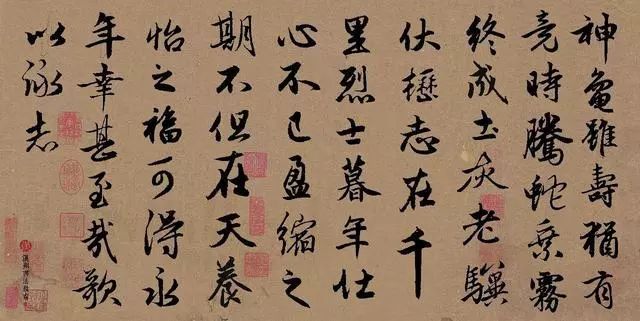 神龜雖壽猶有
竟時騰蛇乘霧
終成土灰老驥
伏櫪志在千
里烈士暮年壮
心不已盈縮之
期不但在天養
怡之福可得永
年幸甚至哉歌
以詠志